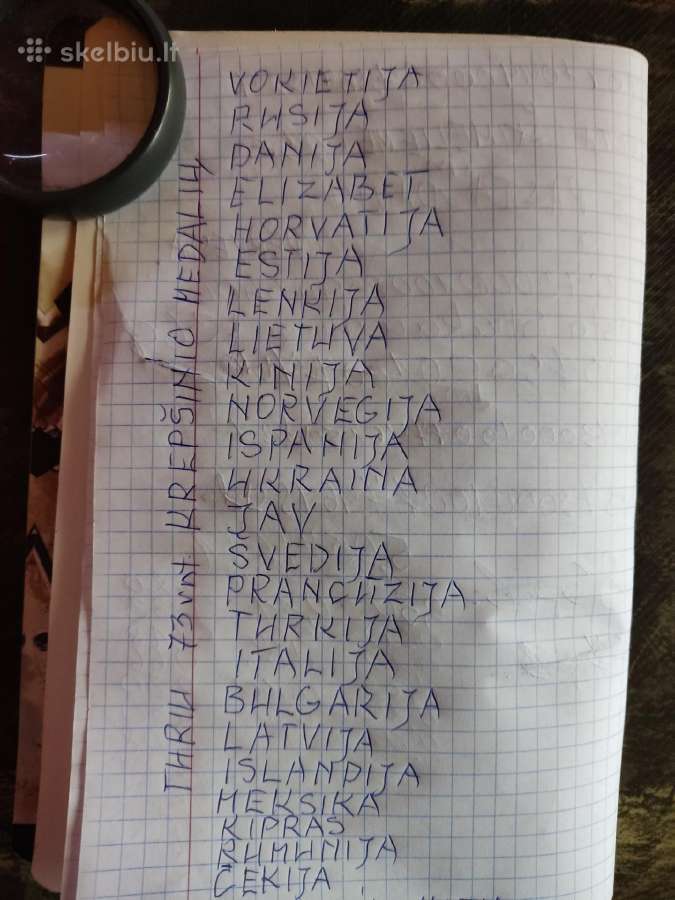 skelbiu.lt
VOKIETIJA
RUSIJA
DANIJA
ELIZABET
HORVATIJA
ESTIJA
LENKIJA
LIETUVA
KINIJA
NORVEGIJA
ISPANIJA
UKRAINA
JAV
ŠVEDIJA
PRANCUZIJA
TURKIJA
ITALIJA
BULGARIJA
LATVIJA
ISLANDIJA
MEKSIKA
KIPRAS
RUMUNIJA
ČEKIJA
TURIU 73 vnt. KREPŠINIO MEDALIŲ